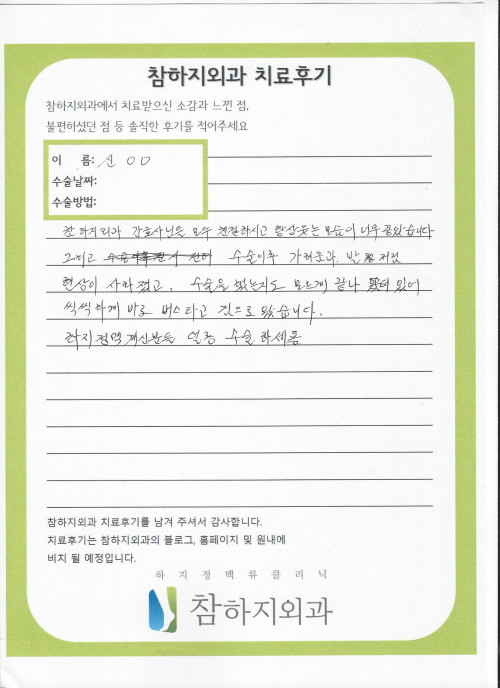 참하지외과 치료후기
참하지외과에서 치료받으신 소감과 느낀 점,
불편하셨던 점 등 솔직한 후기를 적어주세요
이 름: 신 OO
수술날짜:
수술방법:
참하지외과 간호사님들 모두 친절하시고 항상웃는 모습이 너무 좋았습니다
그리고 수술이후 가려움과 발 저림
현상이 사라졌고, 수술을 했는지도 모르게 끝나 있어
씩씩하게 바로 버스타고 집으로 왔습니다.
하지정맥 계신분들 얼릉 수술하세용
참하지외과 치료후기를 남겨 주셔서 감사합니다.
치료후기는 참하지외과의 블로그, 홈페이지 및 원내에
비치 될 예정입니다.
하지정맥류클리닉
참하지외과